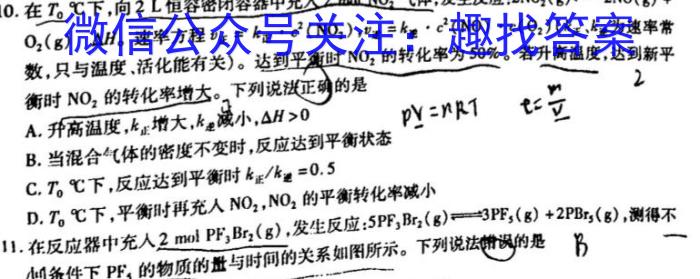 10.在 T₀ ℃下,向2 L恒容密闭容器中充入2 mol NO₂
O₂(g) ΔH。速率方程
微信公众号关注:趣找答案
数,只与温度、活化能有关)。达到平衡时 NO₂ 的转化率为50%。若升高温度,达到新平
衡时 NO₂ 的转化率增大。下列说法正确的是
2
A.升高温度,k正增大,k逆减小,ΔH>0
pV=nRT
B.当混合气体的密度不变时,反应达到平衡状态
C.T₀ ℃下,反应达到平衡时 k正/k逆=0.5
D.T₀ ℃下,平衡时再充入 NO₂,NO₂ 的平衡转化率减小
11.在反应器中充入2 mol PF₃Br₂(g),发生反应:5PF₃Br₂(g)⇌3PF₅(g)+2PBr₅(g),测得不
同条件下 PF₅ 的物质的量与时间的关系如图所示。下列说法错误的是
B